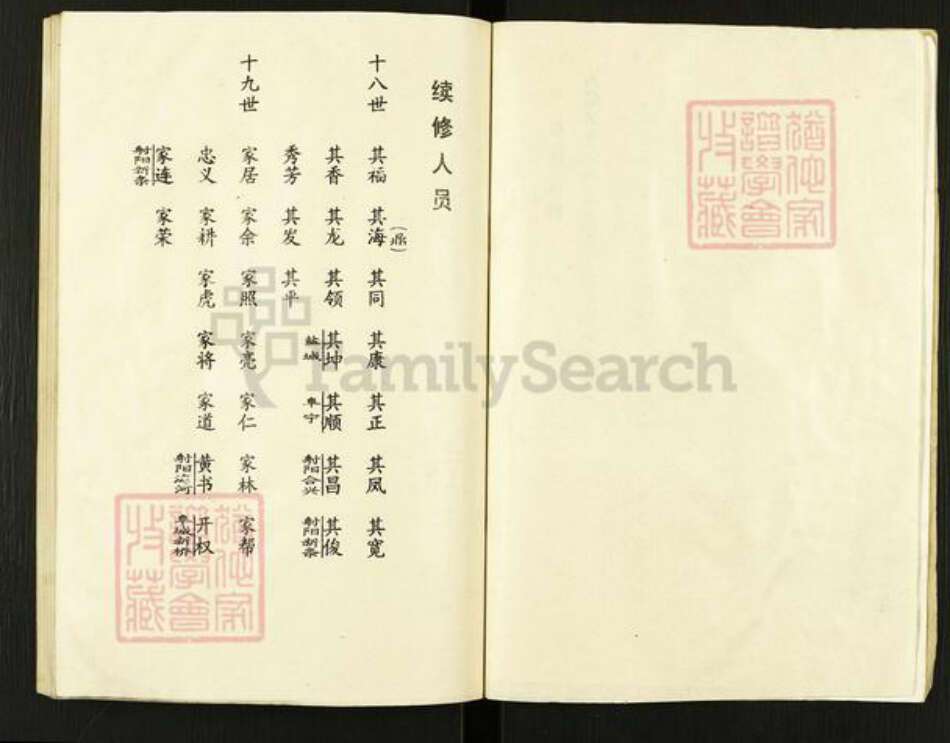 续修人员
十八世 其福 其海(鼎) 其同 其康 其正 其凤 其宽
其香 其龙 其领 其坤 盐城 其顺 阜宁 其昌 射阳合兴 其俊 射阳新条
秀芳 其发 其平
十九世 家居 家余 家照 家亮 家仁 家林 家帮
忠义 家耕 家虎 家将 家道 黄书 射阳 开权
家连 射阳新条 家荣
FamilySearch